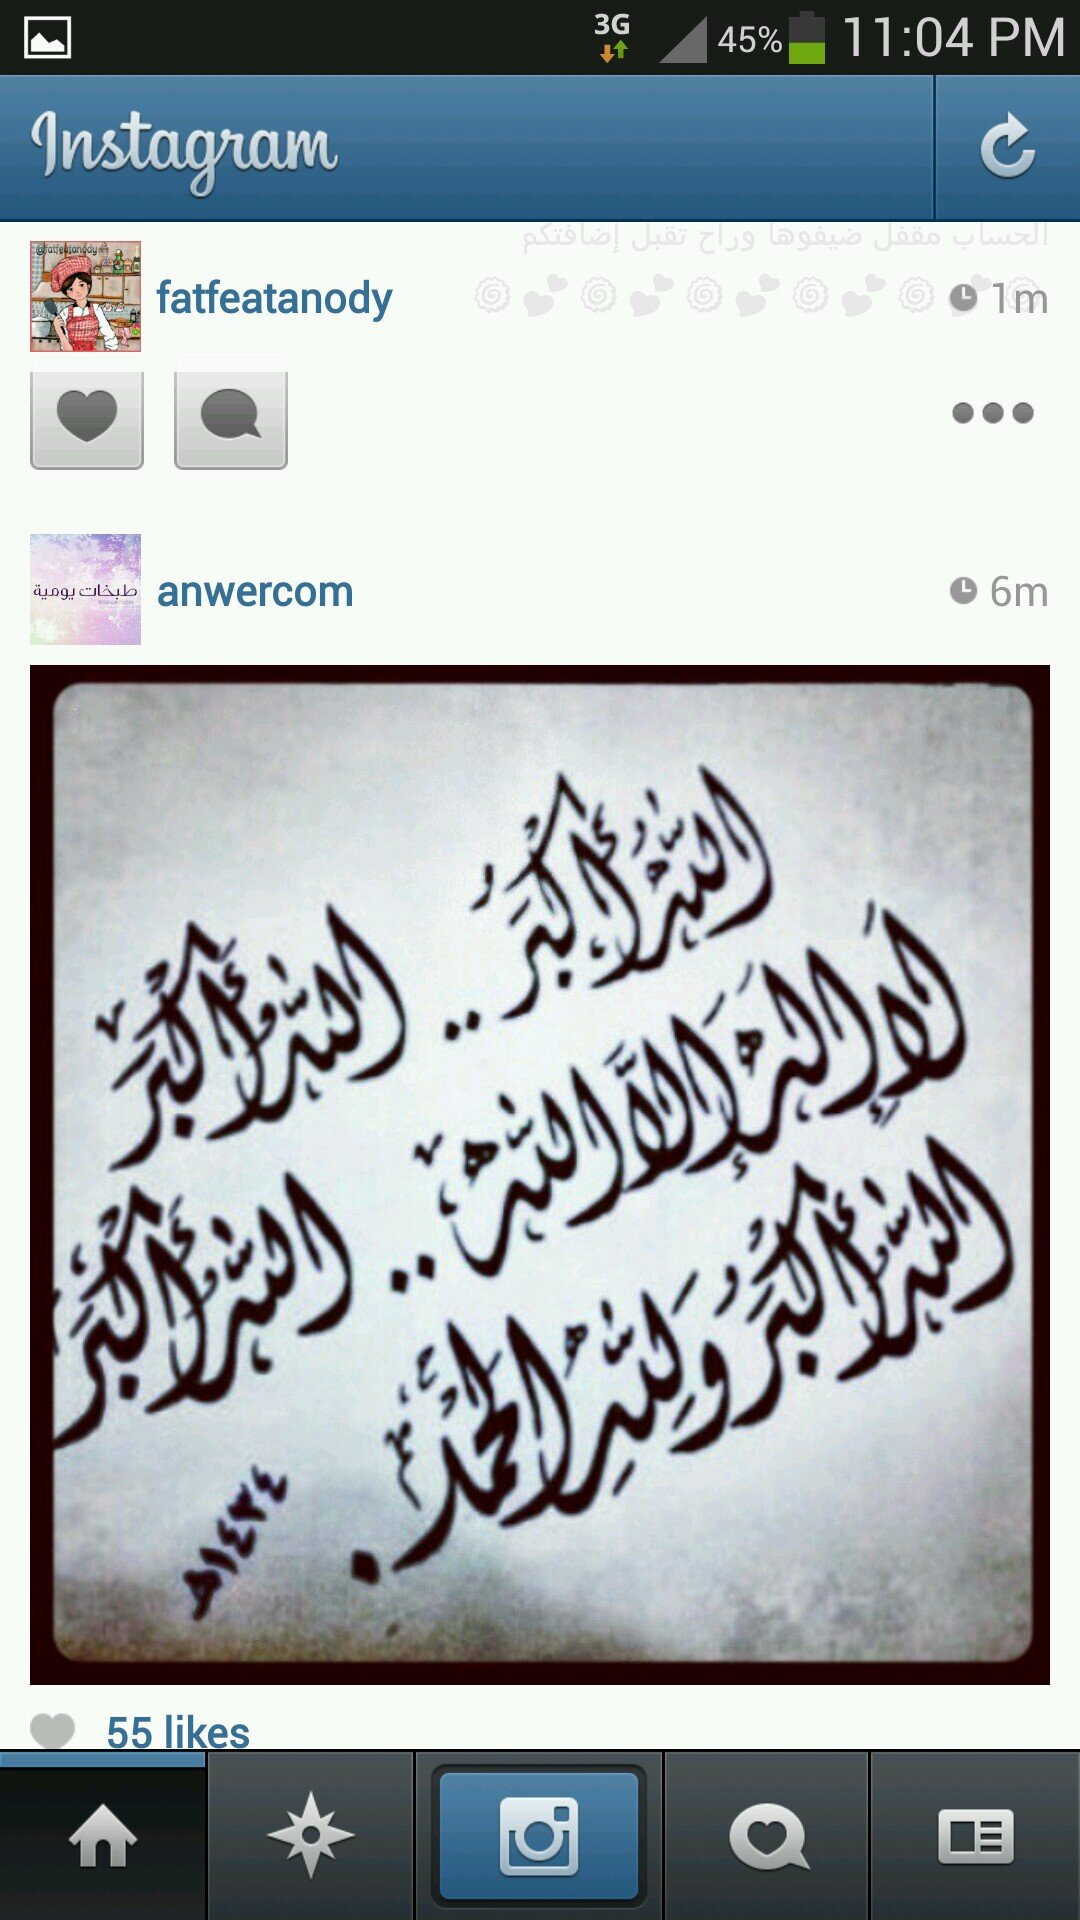 3G 45% 11:04 PM
Instagram
الحساب مقفل ضيفوها وراح تقبل إضافتكم
@fatfeatanody
fatfeatanody 1m
طبخات يومية
anwercom 6m
الله أكبر..
الله أكبر
لا إله إلا الله..
الله أكبر
الله أكبر ولله الحمد.
١٤٣٤هـ
55 likes